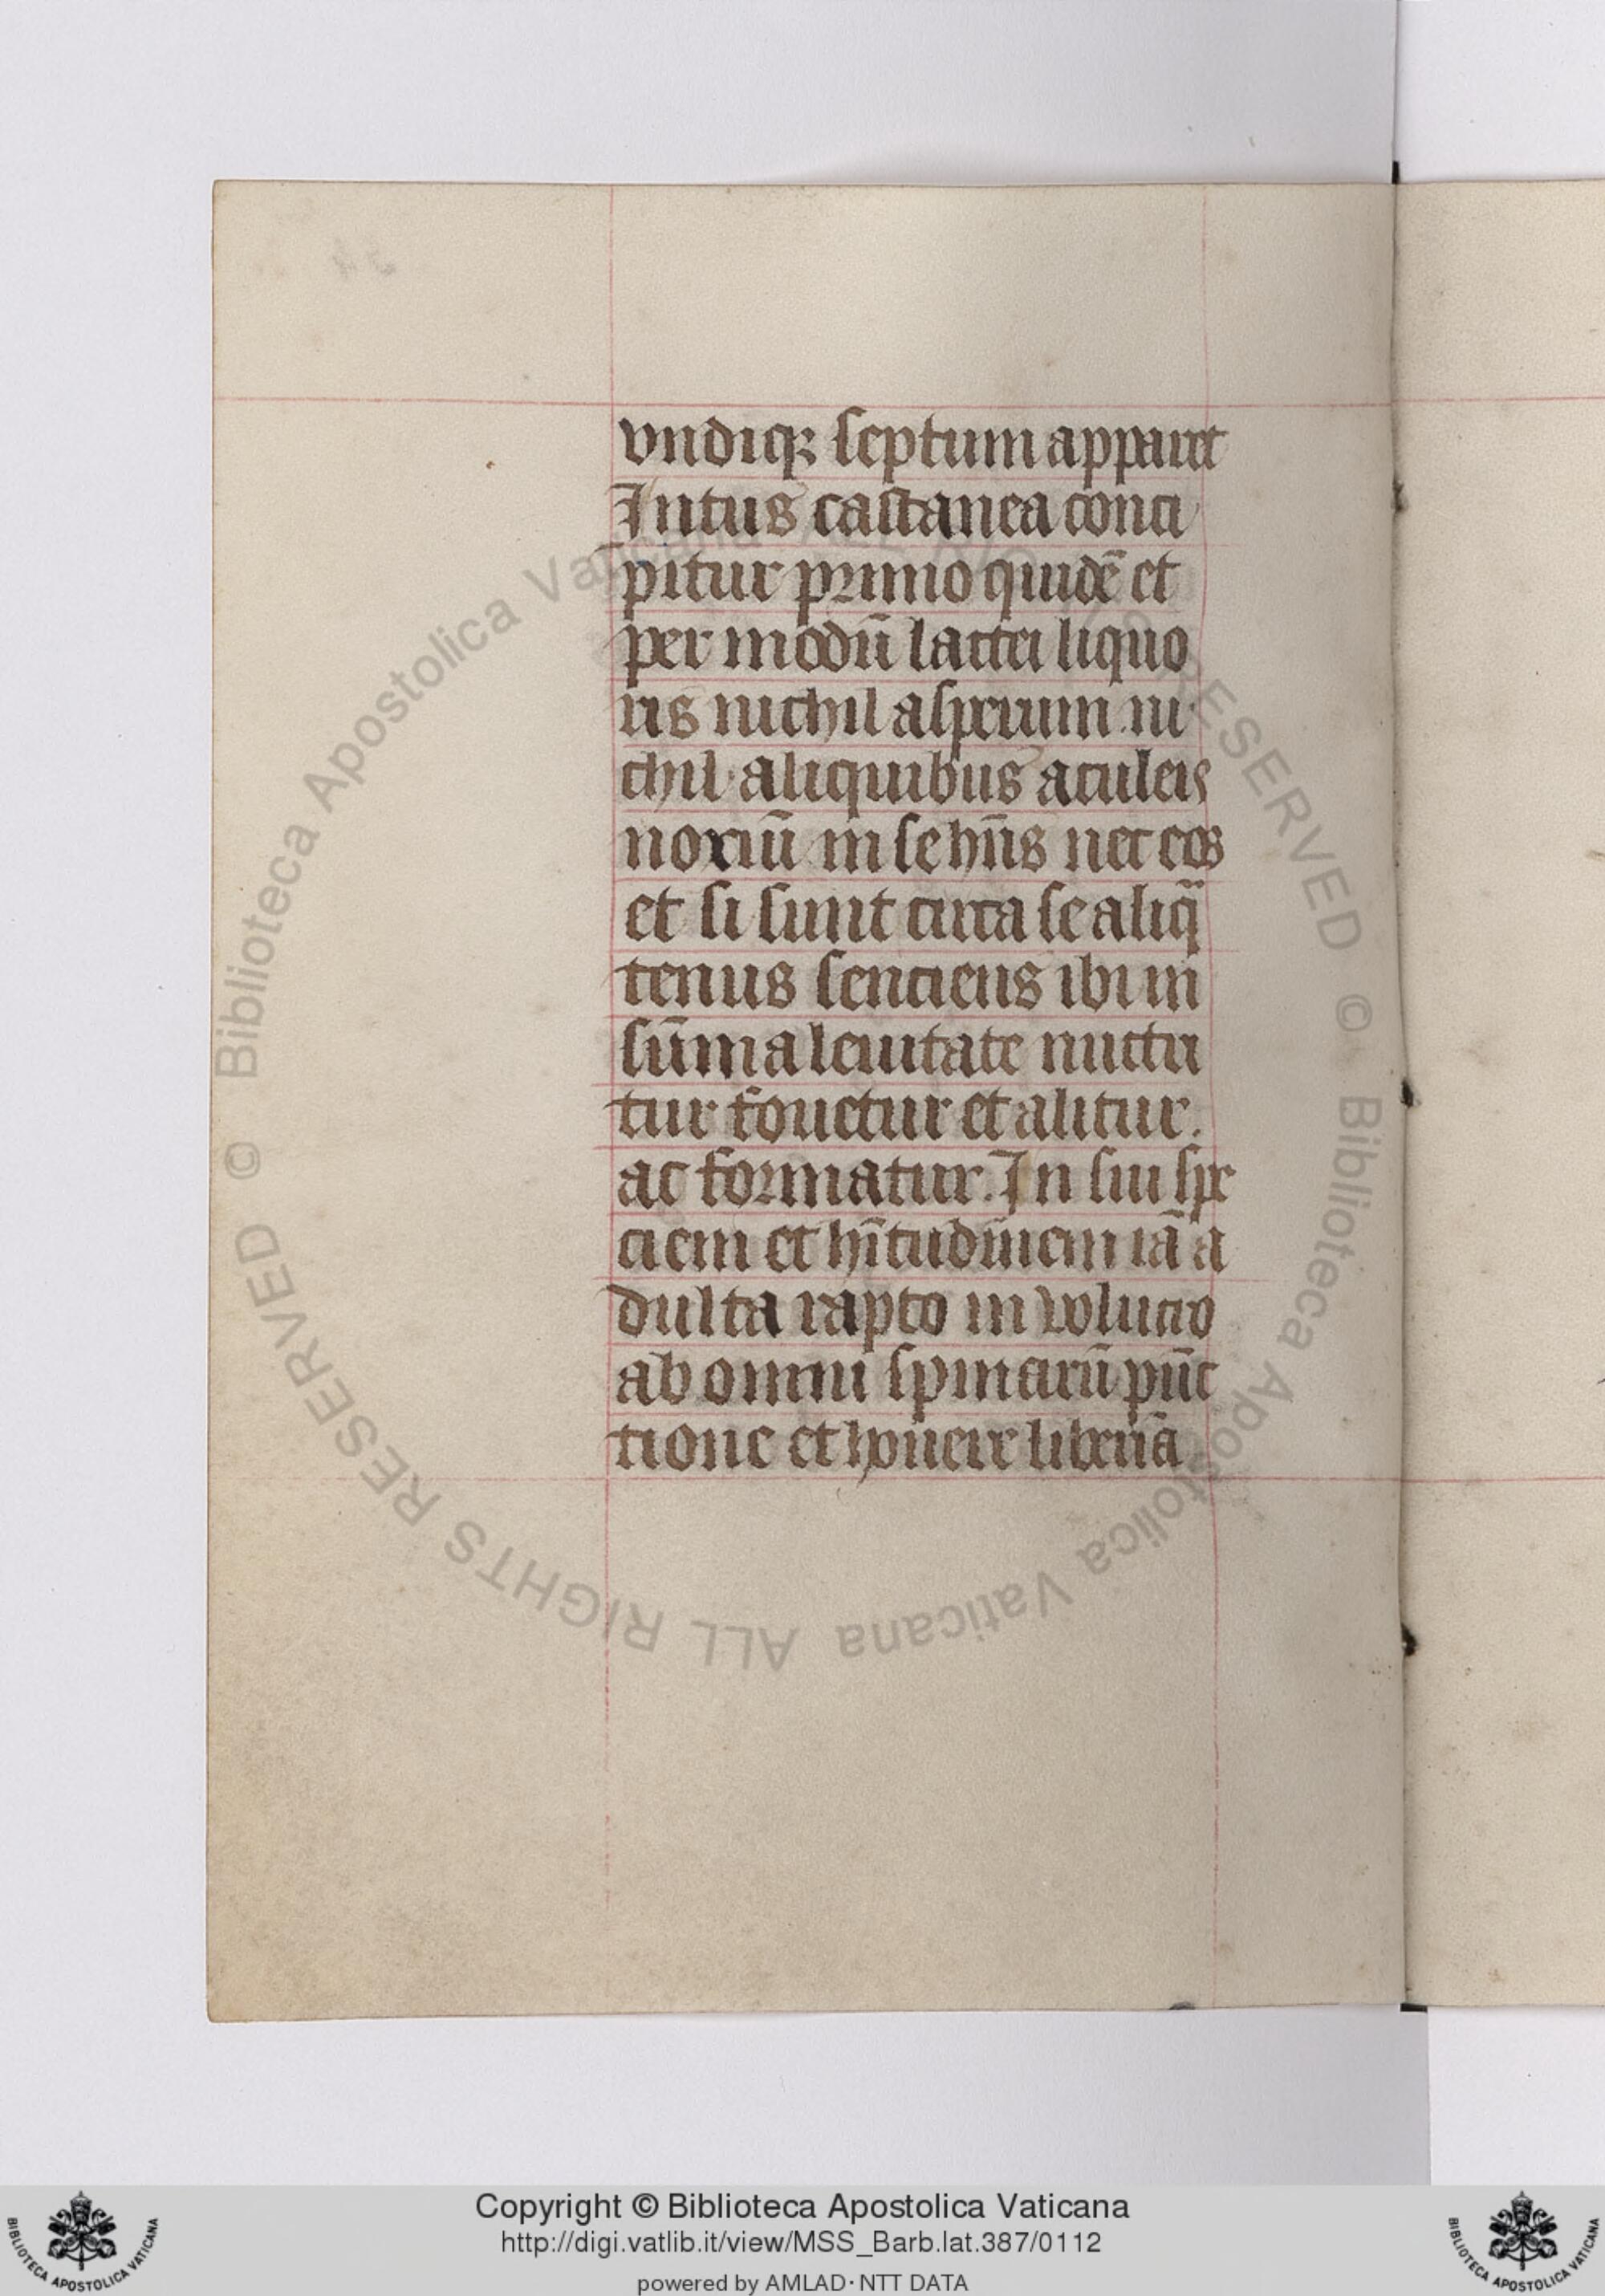 vndiqꝫ septum apparet
Intus castanea conci
pitur primo quidē et
per modū lactei liquo
ris nichil asperum. ni
chil aliquibus aculeis
noxiū in se hn̄s nec eos
et si sunt circa se aliq̄
tenus senciens ibi in
sūma leuitate nutri
tur fouetur et alitur.
ac formatur. In sui spe
ciem et hītudinem iā a
dulta rapto in volucro
ab omni spinarū pūc
tione et honere liberā
Copyright © Biblioteca Apostolica Vaticana
http://digi.vatlib.it/view/MSS_Barb.lat.387/0112
powered by AMLAD·NTT DATA
BIBLIOTECA APOSTOLICA VATICANA
BIBLIOTECA APOSTOLICA VATICANA
© Biblioteca Apostolica Vaticana ALL RIGHTS RESERVED
© Biblioteca Apostolica Vaticana ALL RIGHTS RESERVED